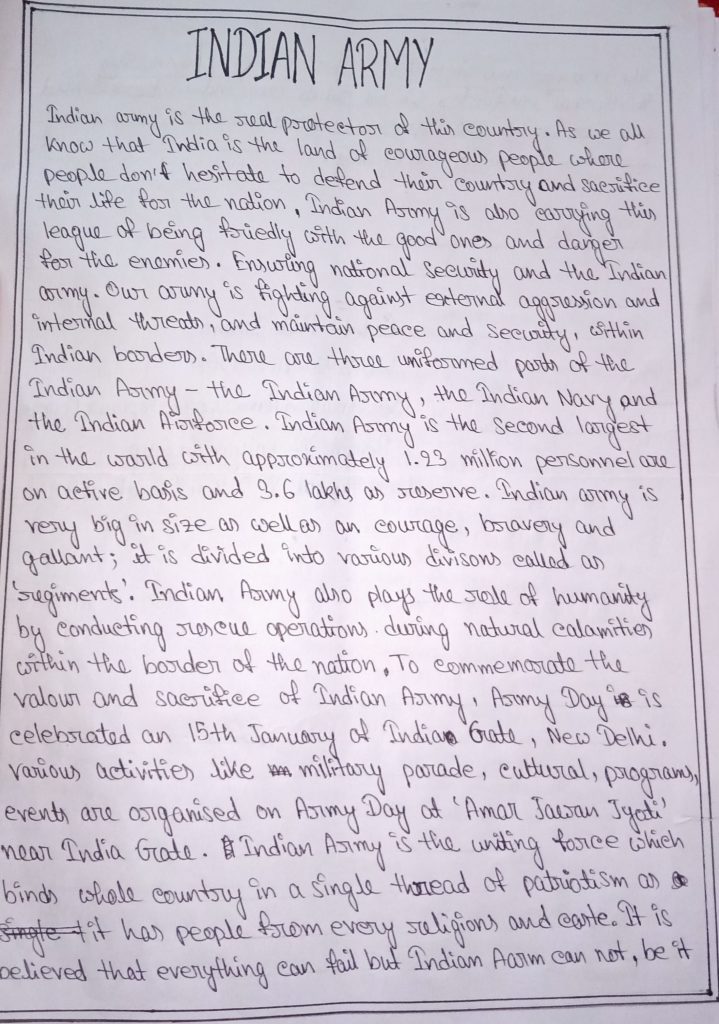 INDIAN ARMY
Indian army is the real protector of this country. As we all
know that India is the land of courageous people where
people don't hesitate to defend their country and sacrifice
their life for the nation, Indian Army is also carrying this
league of being friedly with the good ones and danger
for the enemies. Ensuring national security and the Indian
army. Our army is fighting against external aggression and
internal threats, and maintain peace and security, within
Indian borders. There are three uniformed parts of the
Indian Army - the Indian Army, the Indian Navy and
the Indian Airforce. Indian Army is the second largest
in the world with approximately 1.23 million personnel are
on active basis and 9.6 lakhs as reserve. Indian army is
very big in size as well as an courage, bravery and
gallant; it is divided into various divisons called as
'regiments'. Indian Army also plays the role of humanity
by conducting rescue operations. during natural calamities
within the border of the nation. To commemorate the
valour and sacrifice of Indian Army, Army Day is
celebrated an 15th January at India Gate, New Delhi.
various activities like military parade, cultural, programs,
events are organised on Army Day at 'Amar Jawan Jyoti'
near India Gate. Indian Army is the uniting force which
binds whole country in a single thread of patriotism as
it has people from every religions and caste. It is
believed that everything can fail but Indian Aarm can not, be it